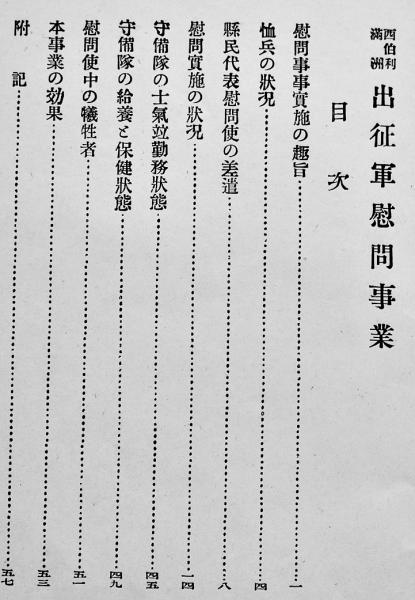 西伯利
滿洲 出征軍慰問事業
目次
慰問事事實施の趣旨……一
恤兵の狀況……四
縣民代表慰問使の差遣……八
慰問實施の狀況……一四
守備隊の士氣竝勤務狀態……四五
守備隊の給養と保健狀態……四九
慰問使中の犧牲者……五一
本事業の効果……五三
附記……五七